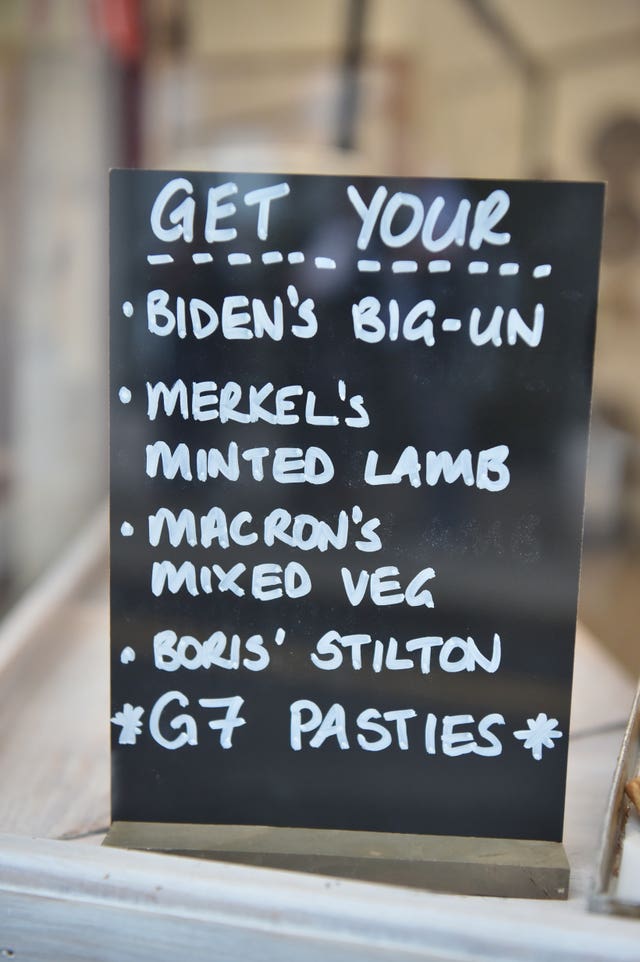 GET YOUR
• BIDEN'S BIG-UN
• MERKEL'S
MINTED LAMB
• MACRON'S
MIXED VEG
• BORIS' STILTON
*G7 PASTIES*